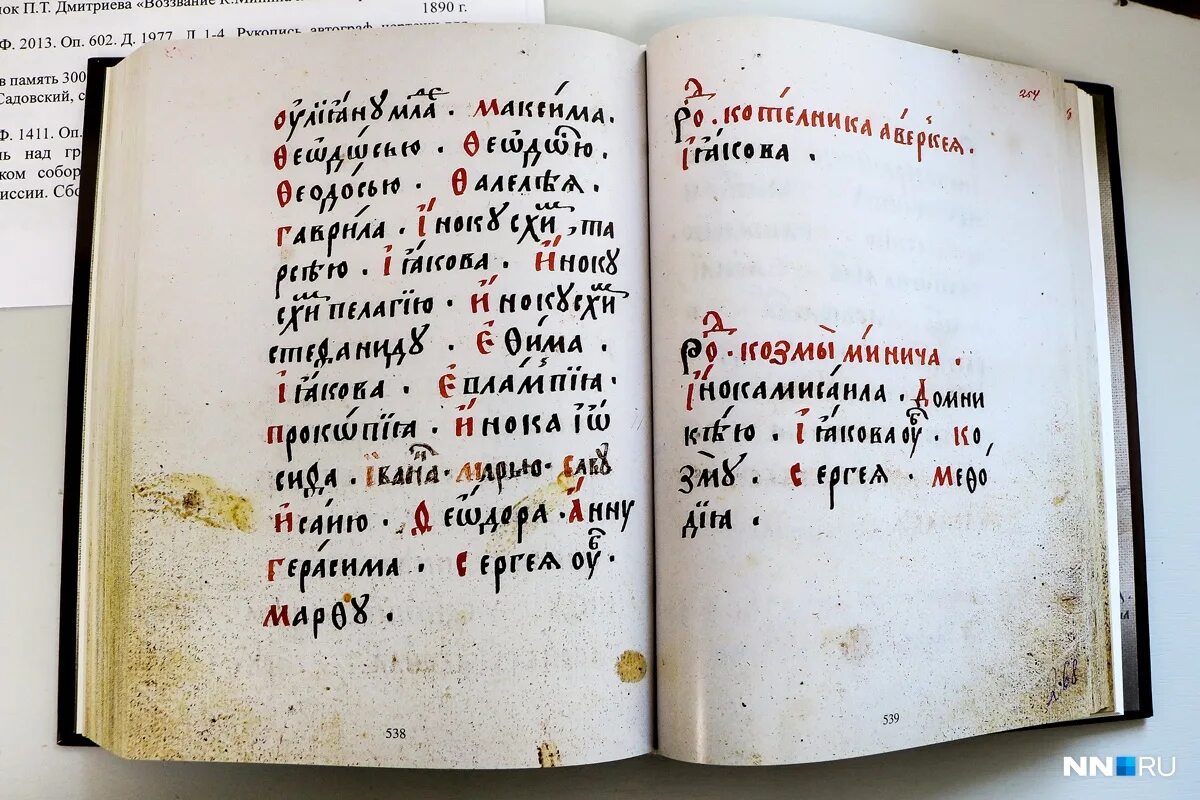 нок П.Т. Дмитриева «Воззвание К.Минина
1890 г.
Ф. 2013. Оп. 602. Д. 1977. Л.1-4. Рукопись, автограф,
в память 300
Садовский, с
Ф. 1411. Оп.
нь над гр
ком собор
иссии. Сбо
оулїꙗнумлⷣа . маки́ма .
Ѳеѡдѡ́сью . Ѳеѡдѡⷮю .
Ѳеодо́сью . Ѳалелѣ́я .
гаври́ла . І҆нокусхи , та
рсѣю . І҆ꙗ́кова . И҆ноку
схи пелагїю . И҆нокусхи
стефаниду . Еѳи́ма .
І҆ꙗ́кова . Евла́мпїꙗ .
прокѡ́пїꙗ . И҆нока їѡ
сифа . Їванⷩа . марью . саву
И҆са́ию . Ѳеѡ́дора . А҆нну
гера́сима . сергея оуⷠ .
марѳу .
538
254
Рⷣо . коте́лника аве́ркея .
І҆ꙗ́кова .
Рⷣо . козмы ми́нича .
І҆нокамисаила . домни
кѣ́ю . І҆ꙗ́коваоуⷠ . ко ,
змⷨу . сергея . меѳо́
дїꙗ .
л. 68
539
NN RU